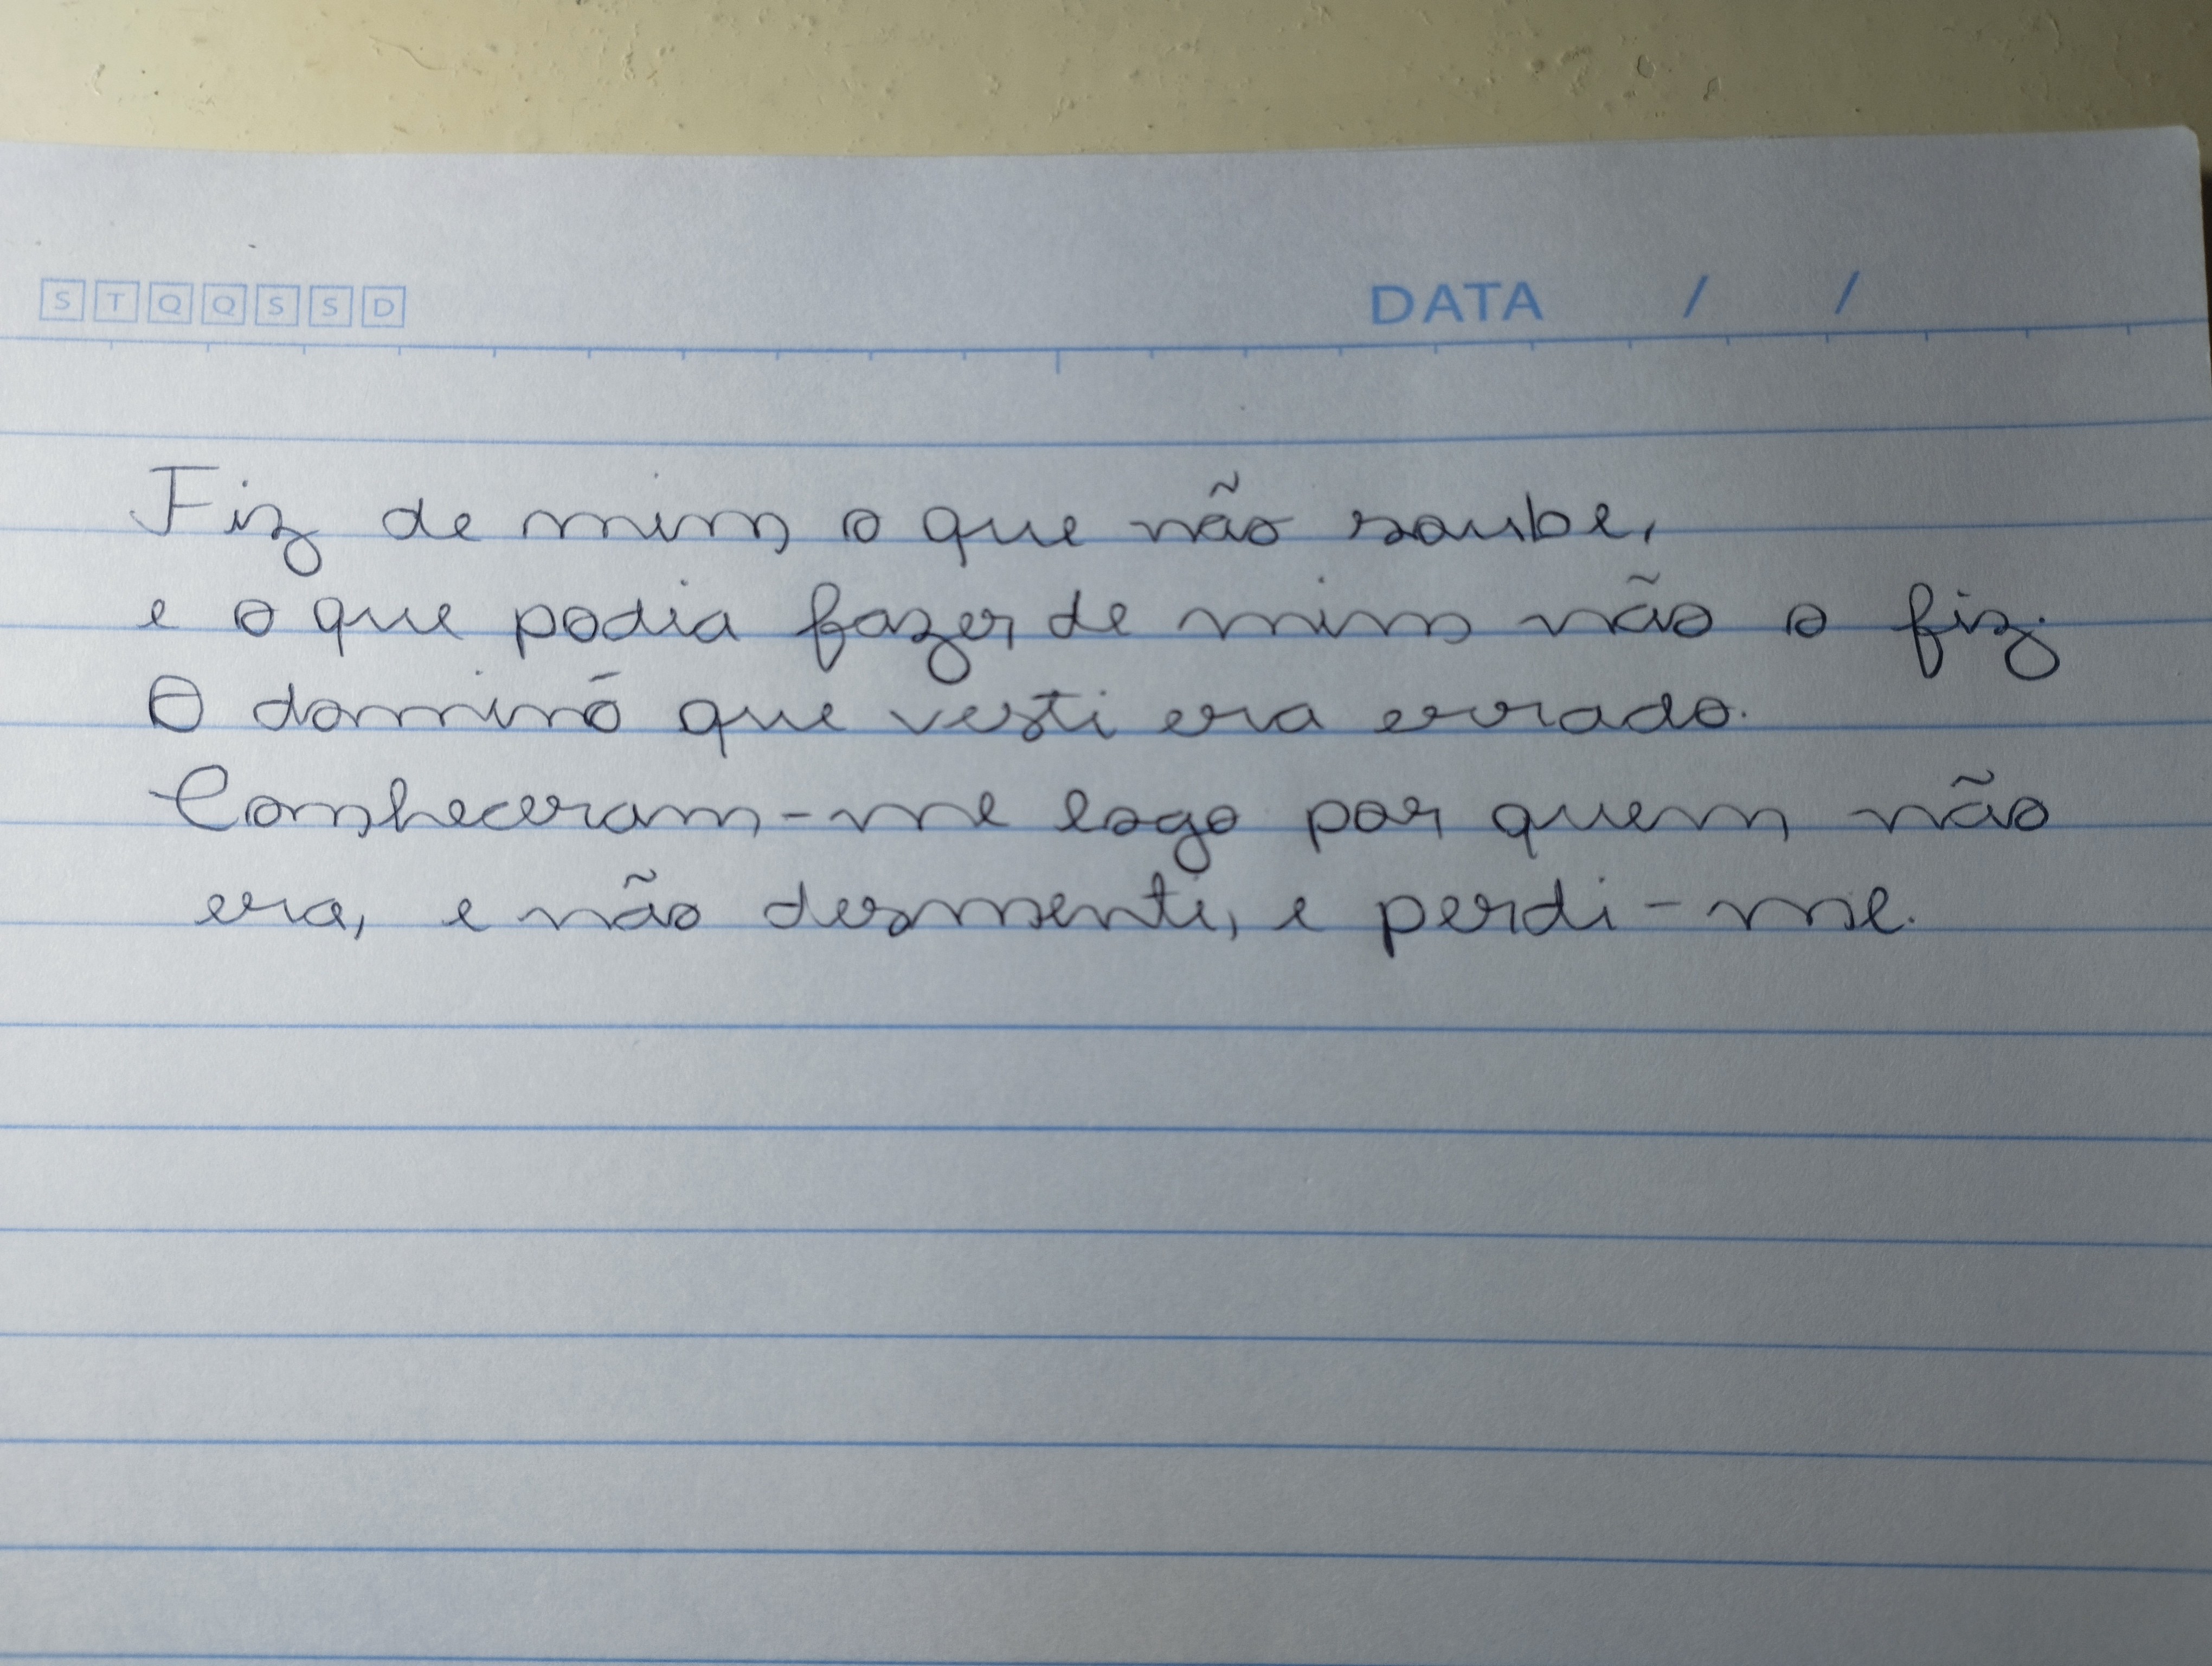 S T Q Q S S D DATA / /
Fiz de mim o que não soube,
e o que podia fazer de mim não o fiz.
O dominó que vesti era errado.
Conheceram-me logo por quem não
era, e não desmenti, e perdi-me.